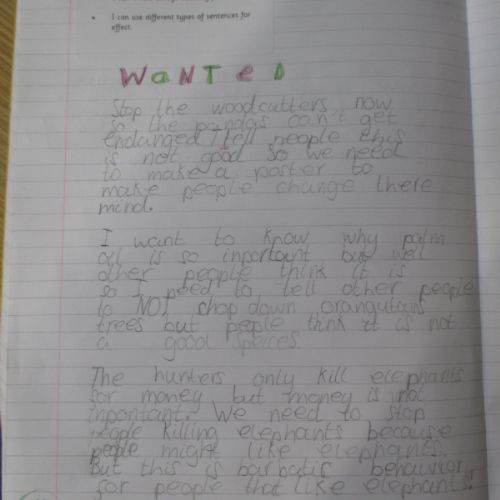 I can use different types of sentences for
effect.
WaNTeD
Stop the woodcutters now
so the pandas can't get
endanged tell people this
is not good so we need
to make a poster to
make people change there
mind.
I want to know why palm
oil is so inportant but well
other people think it is
so I need to tell other people
to NOT chop down orangutans
trees but people think it is not
a good speices.
The hunters only kill elephants
for money but money is not
inportant. We need to stop
people killing elephants because
people might like elephants.
But this is behavior
for people that like elephants!